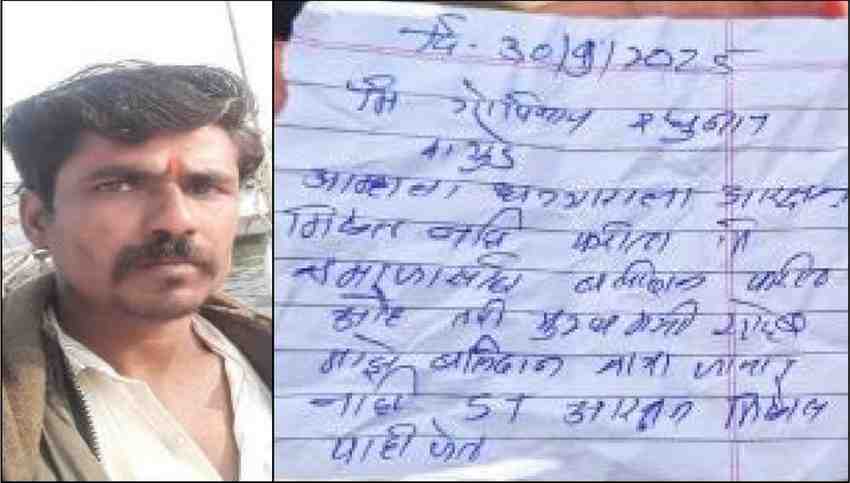 दि - 30/9/2025
मि गोपिनाथ रघुनाथ
आम्हाला धनगराला आरक्षण
मिळत नाही करीता मि
समाजासाठी बलिदान करित
आहे तरी मुख्यमंत्री साहेब
माझे बलिदान मात्रा जानार
नाही ST आरक्षन मिळाल
पाहीजेत